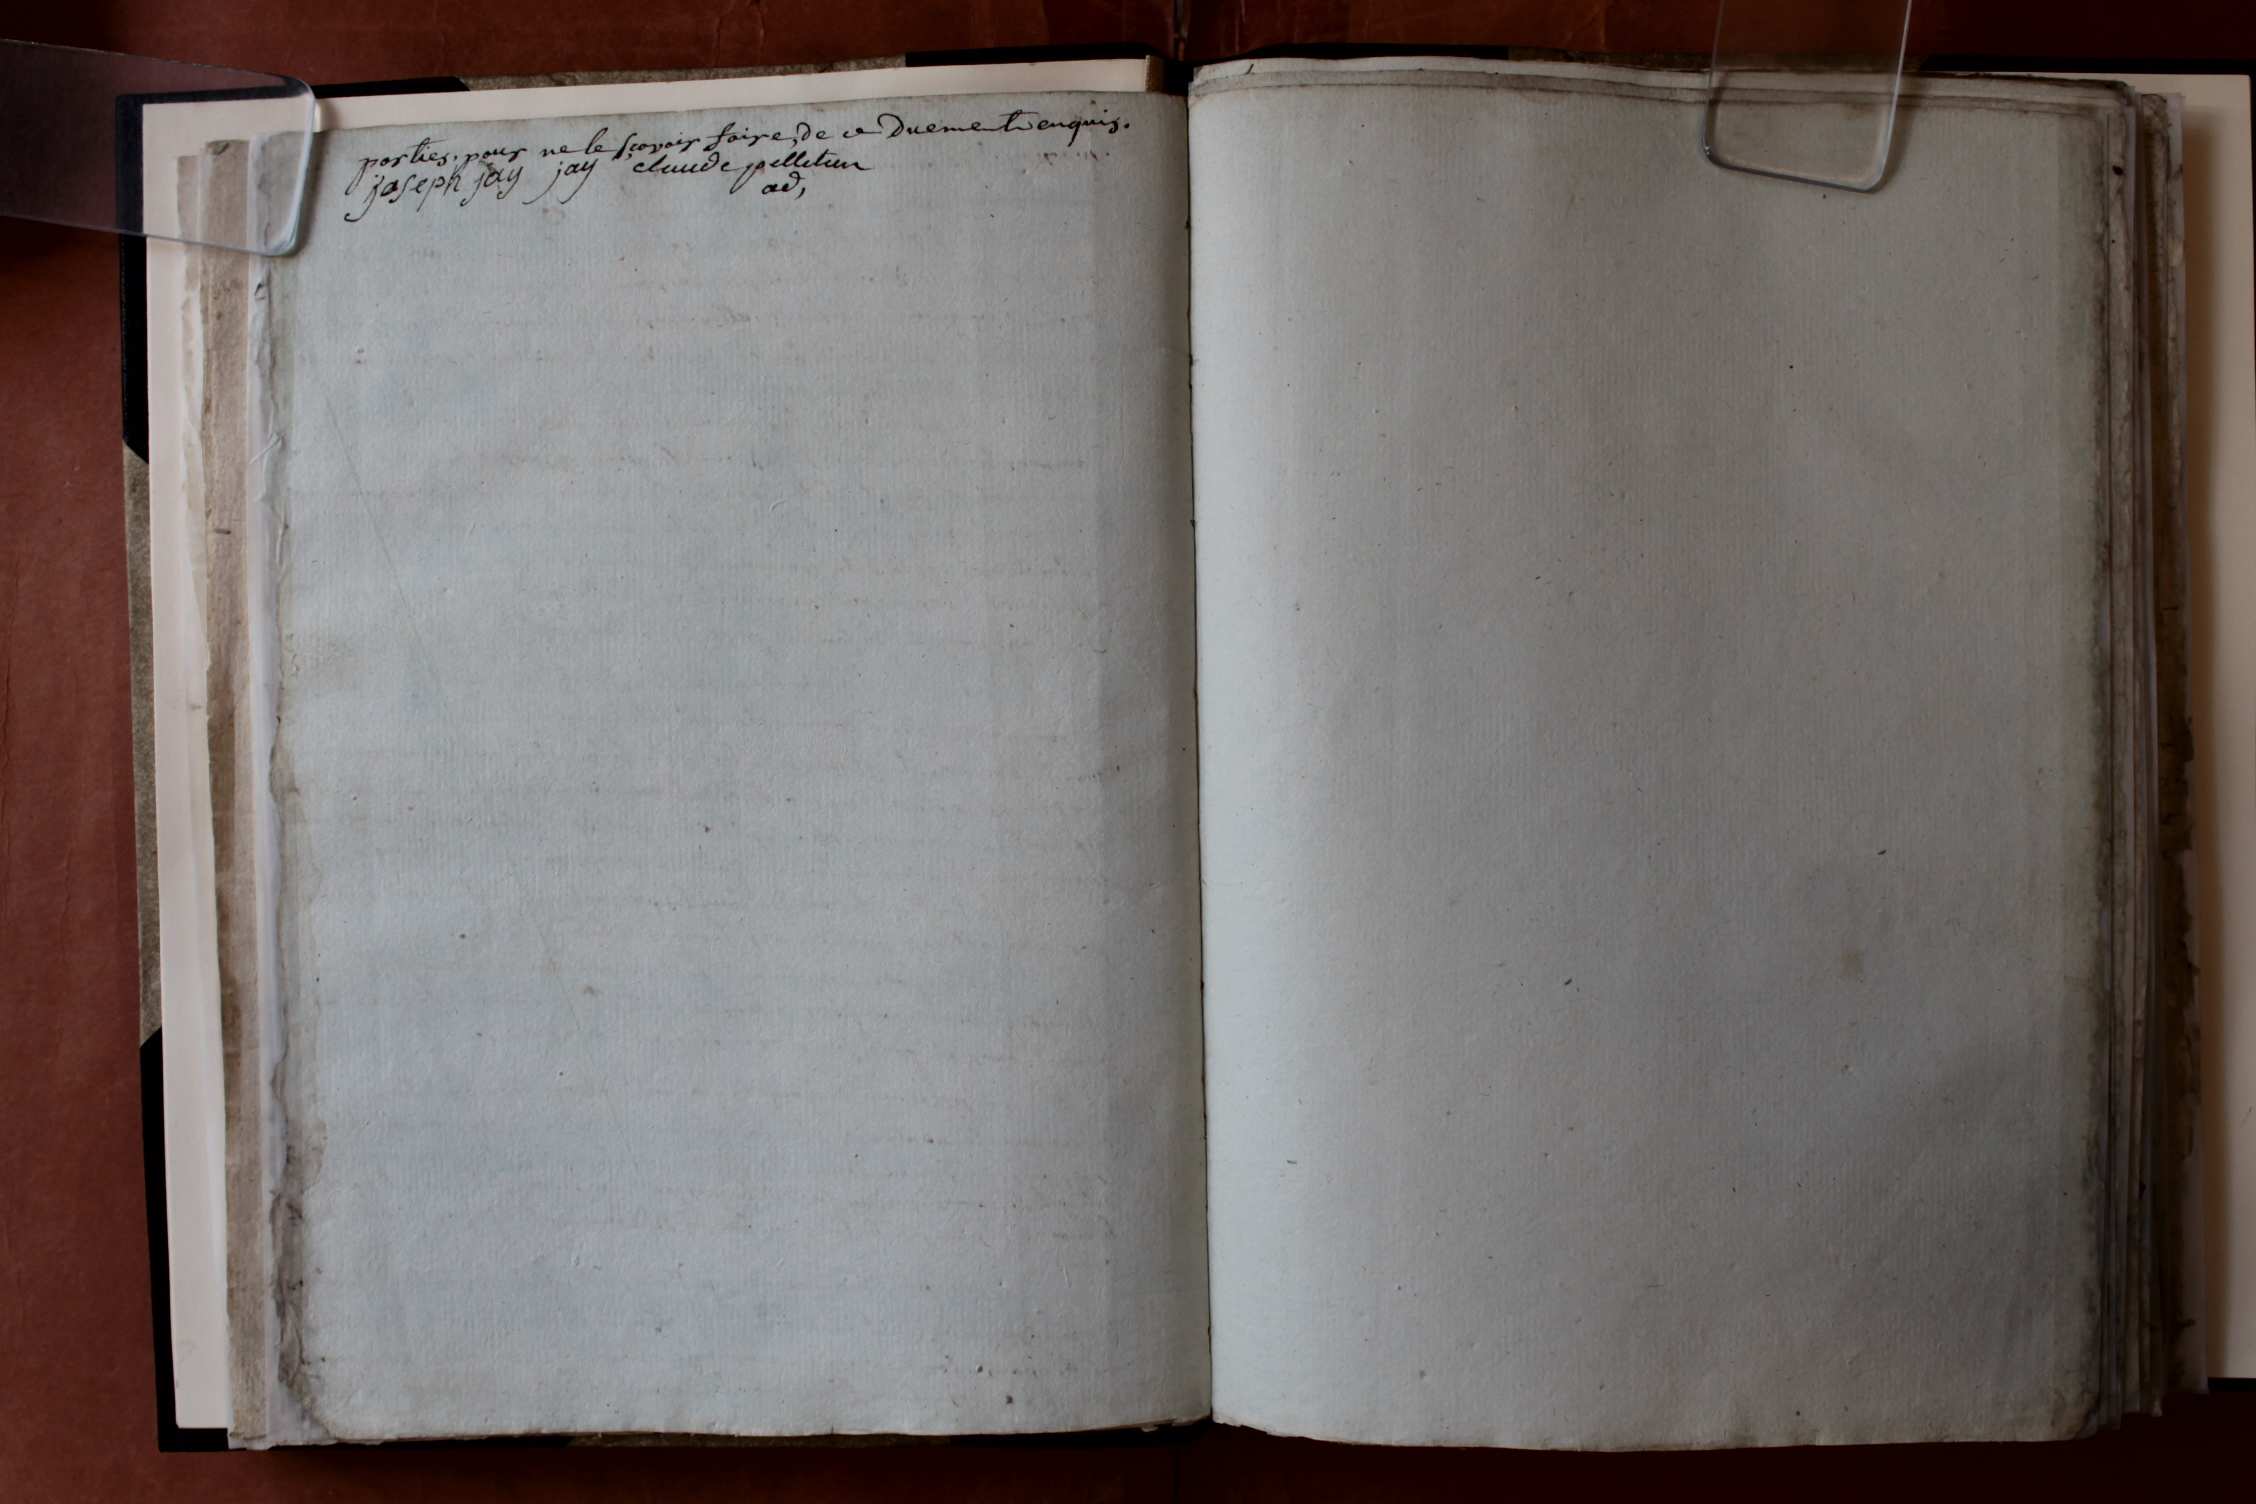 parties. pour ne le sçavoir faire, de ce Duement enquis.
joseph jay jay claude pelletun
ad,